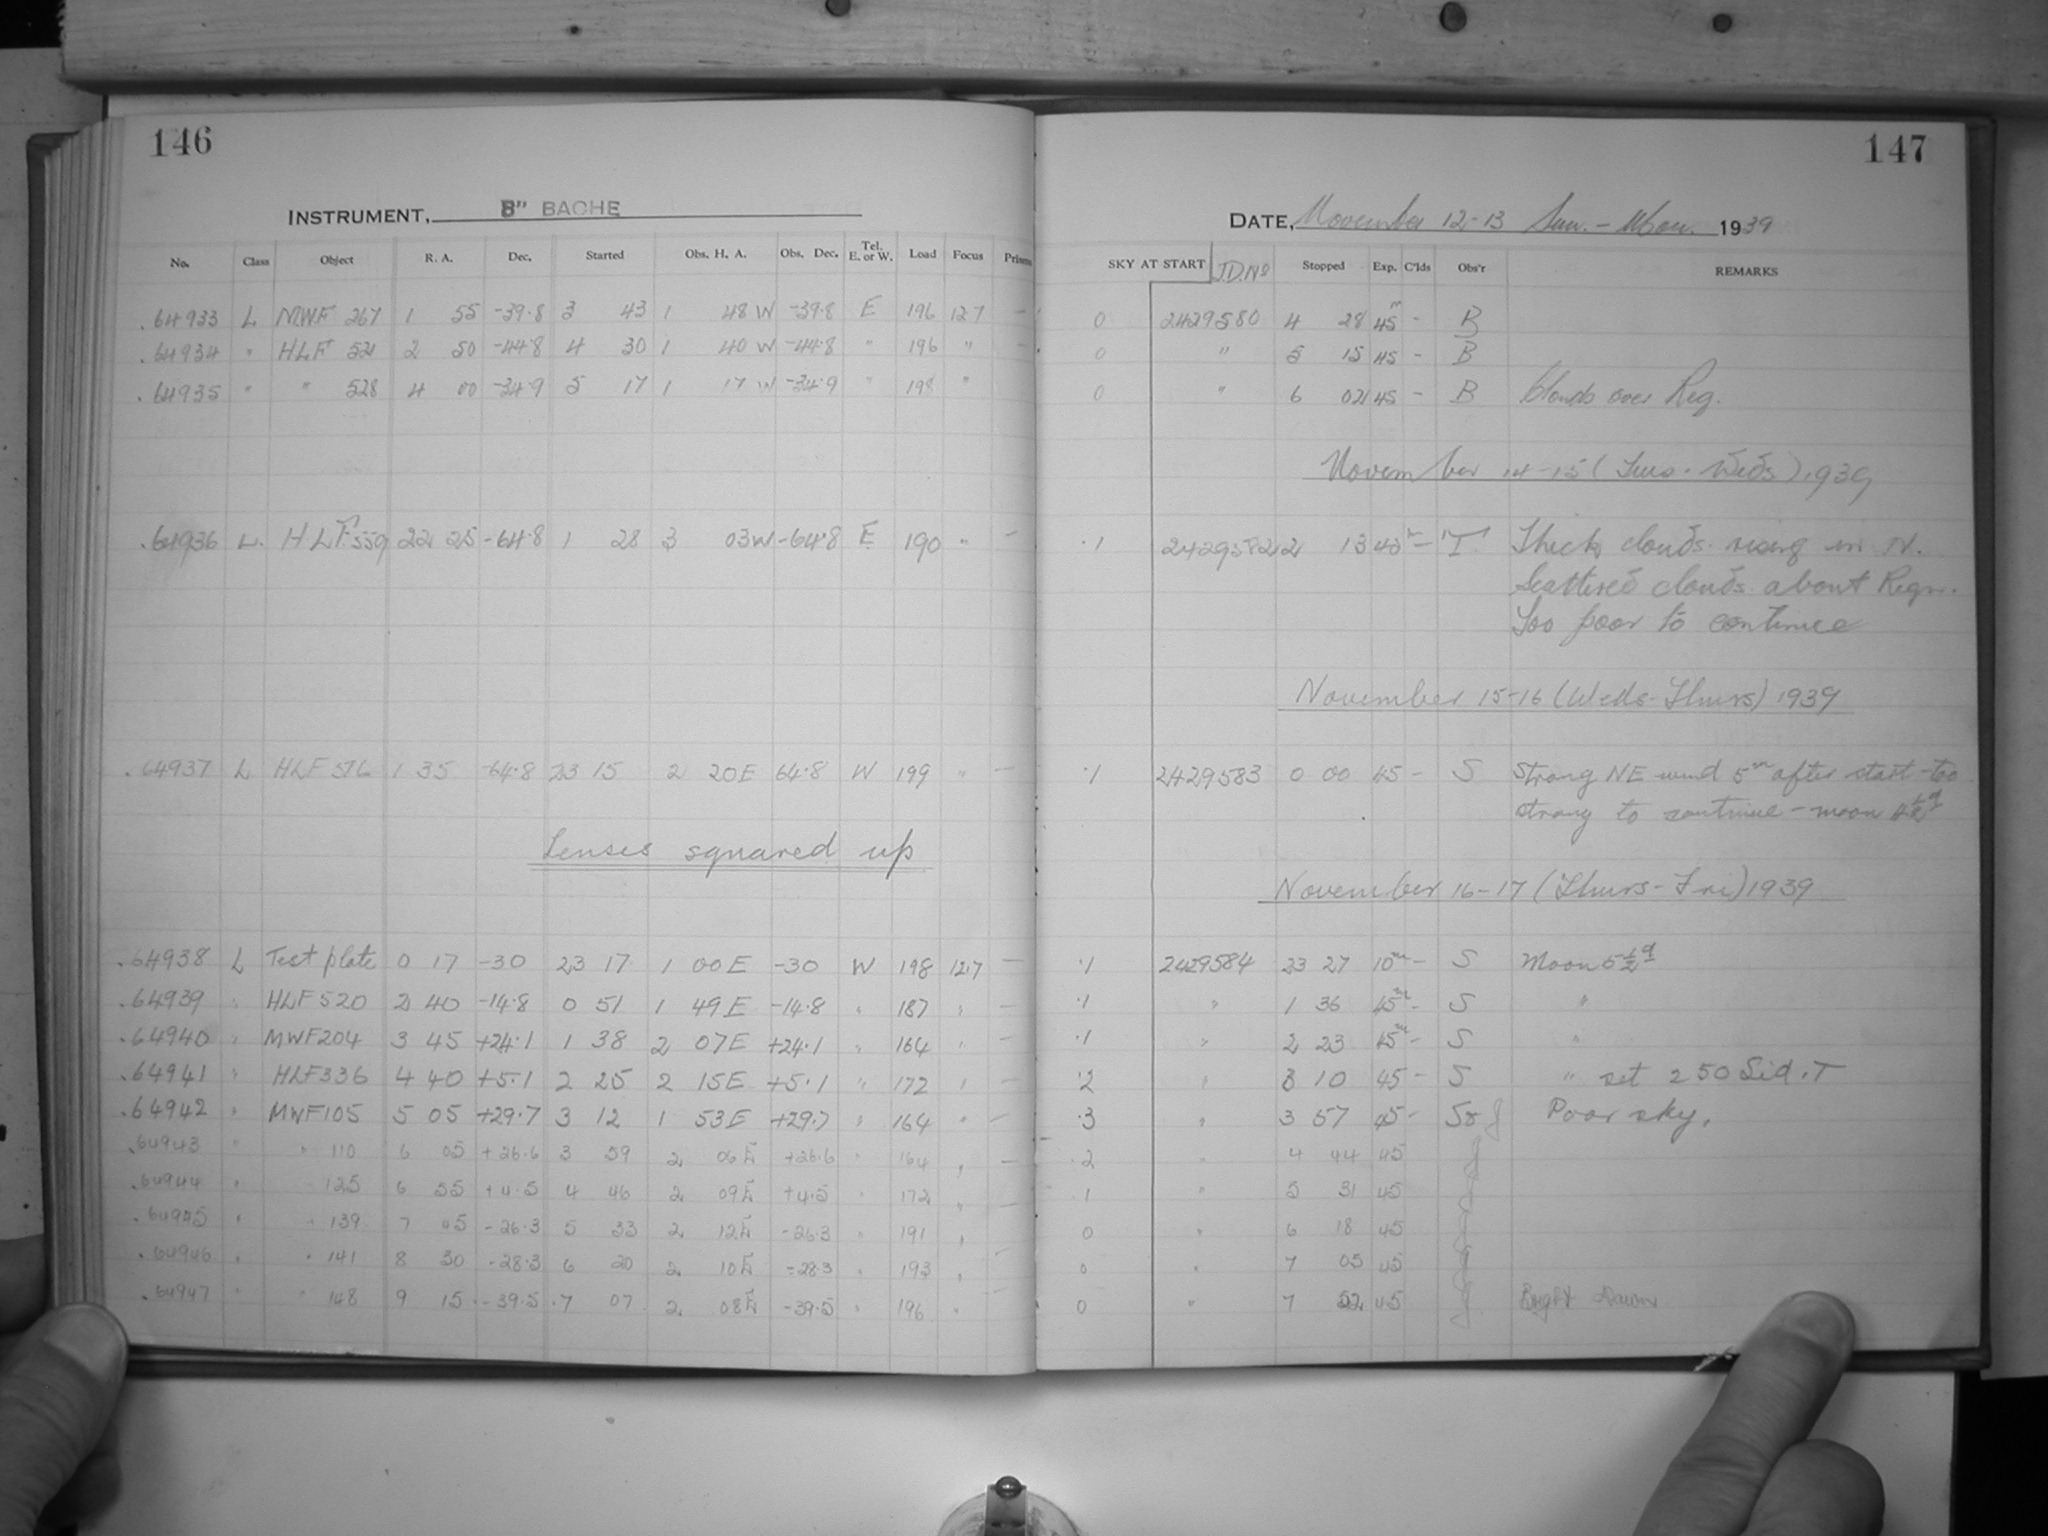 146
INSTRUMENT, 8" BACHE
No. Class Object R. A. Dec. Started Obs. H. A. Obs. Dec. Tel. E. or W. Load Focus Prism
.64933 L MWF 267 1 55 -39.8 3 43 1 48 W -39.8 E 196 12.7 -
.64934 " HLF 521 2 50 -44.8 4 30 1 40 W -44.8 " 196 " -
.64935 " " 528 4 00 -34.9 5 17 1 17 W -34.9 " 198 "
.64936 L. HLF 559 22 25 -64.8 1 28 3 03 W -64.8 E 190 " -
.64937 L HLF 516 1 35 -64.8 23 15 2 20 E 64.8 W 199 " -
Lenses squared up
.64938 L Test plate 0 17 -30 23 17 1 00 E -30 W 198 12.7 -
.64939 " HLF 520 2 40 -14.8 0 51 1 49 E -14.8 " 187 " -
.64940 " MWF204 3 45 +24.1 1 38 2 07 E +24.1 " 164 " -
.64941 " HLF336 4 40 +5.1 2 25 2 15 E +5.1 " 172 " -
.64942 " MWF105 5 05 +29.7 3 12 1 53 E +29.7 " 164 " -
.64943 " " 110 6 05 +26.6 3 59 2 06 E +26.6 " 164 " -
.64944 " 125 6 55 +4.5 4 46 2 09 E +4.5 " 172 "
.64945 " " 139 7 45 -26.3 5 33 2 12 E -26.3 " 191 "
.64946 " " 141 8 30 -28.3 6 20 2 10 E -28.3 " 193 " -
.64947 " " 148 9 15 -39.5 7 07 2 08 E -39.5 " 196 " -
147
DATE, November 12-13 Sun. - Mon. 1939
SKY AT START J.D. No Stopped Exp. C'lds Obs'r REMARKS
0 2429580 4 28 45m - B
0 " 5 15 45 - B
0 " 6 02 45 - B Clouds over Reg.
November 14-15 (Tues. Weds) 1939
.1 2429582 2 13 45m - "T" Thick clouds rising in N.
Scattered clouds about Regn.
Too poor to continue
November 15-16 (Weds-Thurs) 1939
.1 2429583 0 00 45 - S Strong NE wind 5m after start - too
strong to continue - moon 4½d
November 16-17 (Thurs-Fri) 1939
.1 2429584 23 27 10m - S Moon 5½d
.1 " 1 36 45m - S "
.1 " 2 23 45m - S "
.2 " 3 10 45 - S " set 2 50 Sid. T
.3 " 3 57 45 - S Poor sky.
.2 " 4 44 45
.1 " 5 31 45
0 " 6 18 45
0 " 7 05 45
0 " 7 52 45 Bright Dawn